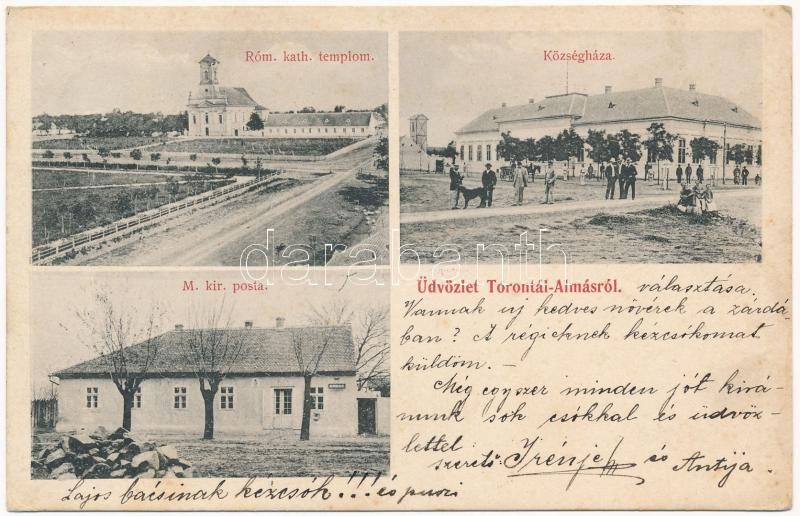 Róm. kath. templom.
Községháza.
M. kir. posta.
Üdvözlet Torontál-Almásról.
választása.
Vannak uj kedves nővérek a zárdá-
ban? A régieknek kézcsókomat
küldöm. —
Még egyszer minden jót kivá-
nunk sok csókkal és üdvöz-
lettel
szerető: Irénje és Antija.
Lajos bácsinak kézcsók!!! és puszi
darabanth